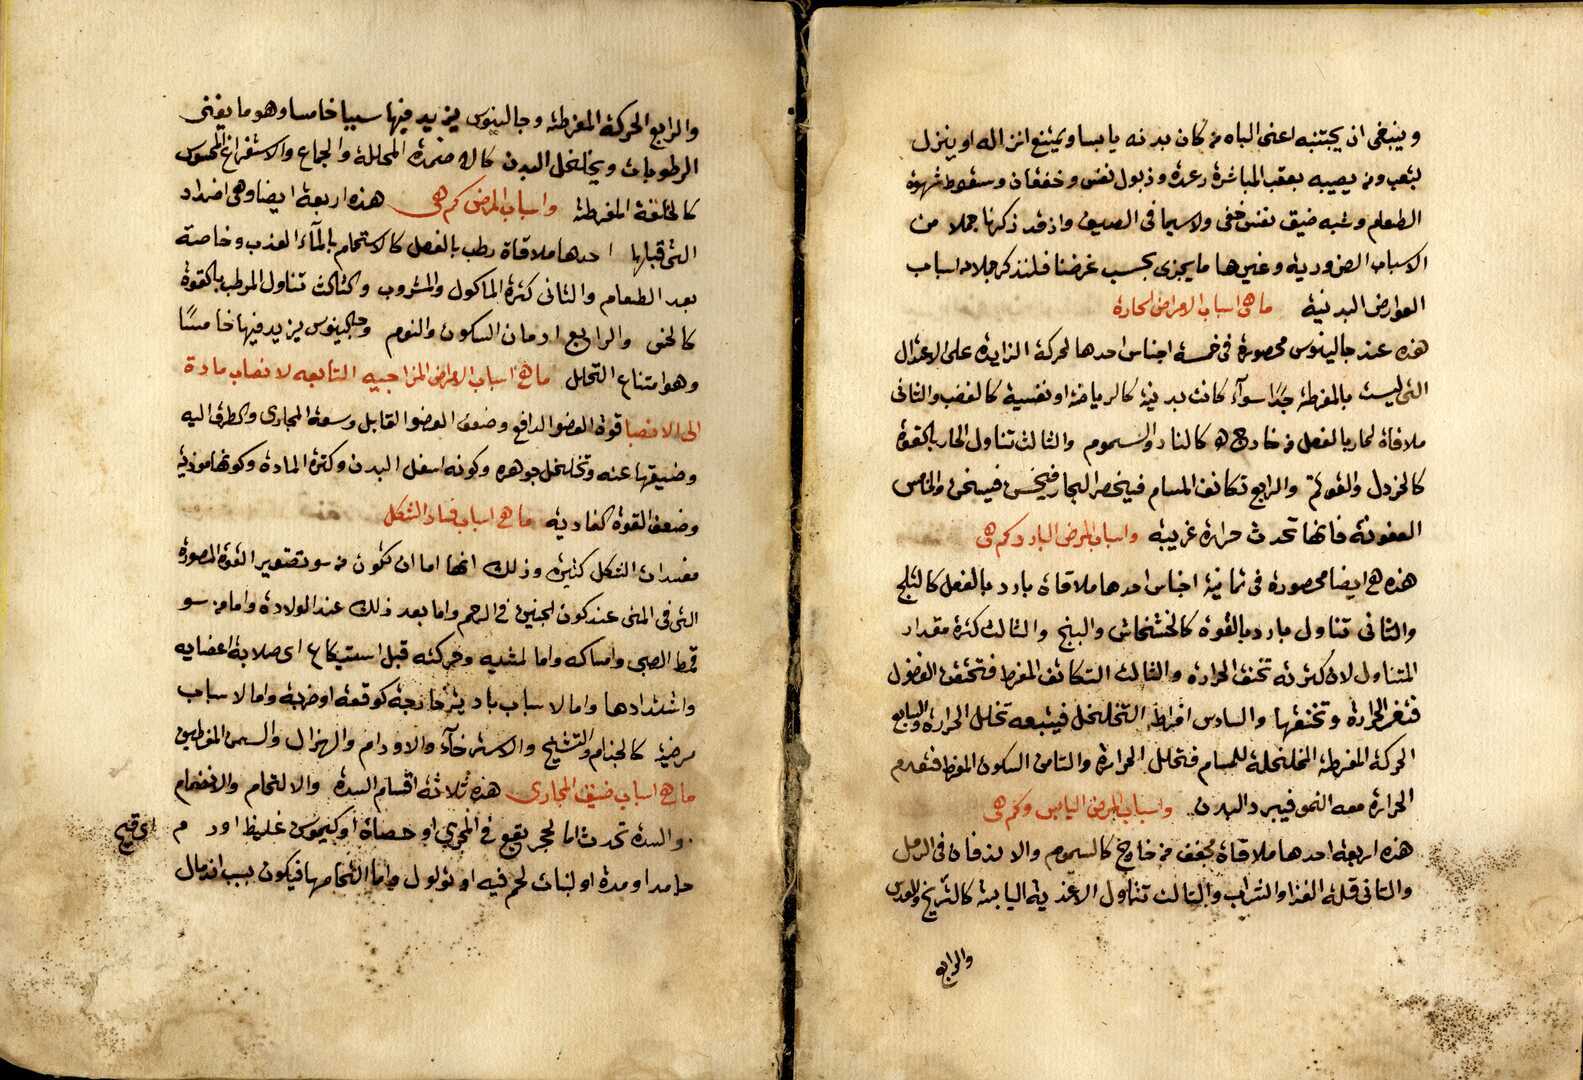 وينبغى ان يجتنبه اعنى الباه من كان بدنه يابسا ويمتنع انزاله او ينزل
بتعب ومن يصيبه بعقب المباشرة رعدة وذبول نفس وخفقان وسقوط شهوة
الطعام وشبه ضيق نفس خفى ولاسيما فى الصيف واذ قد ذكرنا جملا من
الاسباب الضرورية وغيرها ما يجزى بحسب غرضنا فلنذكر جملا من اسباب
العوارض البدنية ما هى اسباب الامراض الحارة
هذه عند جالينوس محصورة فى خمسة اجناس احدها الحركة الزايدة على الاعتدال
التى ليست بالمفرطة جدًا سوآء كانت بدنية كالرياضة او نفسية كالغضب والثانى
ملاقاة لحار بالفعل من خارج كالنار والسموم والثالث تناول الحار بالقوة
كالخردل والثوم والرابع تكاثف المسام فينحصر البخار فيسخن والخامس
العفونة فانها تحدث حرارة غريبة واسباب المرض البارد كم هى
هذه هى ايضا محصورة فى ثمانية اجناس احدها ملاقاة بارد بالفعل كالثلج
والثانى تناول بارد بالقوة كالخشخاش والبنج والثالث كثرة مقدار
المتناول لان كثرته تخنق الحرارة والثالث التكاثف المفرط فتحتقن الفضول
فتغمر الحرارة وتخنقها والسادس افراط التخلخل فيتبعه تحلل الحرارة والسابع
الحركة المفرطة المخلخلة للمسام فتحلل الحرارة والثامن السكون المفرط فتعدم
الحرارة معه النمو فيبرد البدن واسباب المرض اليابس وكم هى
هذه اربعة احدها ملاقاة مجفف من خارج كالسموم والاندفان فى الرمل
والثانى قلة الغذا والشراب والثالث تناول الاغذية اليابسة والعدس
والرابع
والرابع الحركة المفرطة وجالينوس يزيد فيها سببا خامسا وهو ما يفنى
الرطوبات ويخلخل البدن كالاضمدة المحللة والجماع والاستفراغ المحسوس
كالخلفة المفرطة واسباب المرض كم هى هذه اربعة ايضا وهى اضداد
التى قبلها احدها ملاقاة رطب بالفعل كالاستحمام بالمآء العذب وخاصة
بعد الطعام والثانى كثرة الماكول والمشروب والثالث تناول المرطب بالقوة
كالخس والرابع ادمان السكون والنوم وجالينوس يزيد فيها خامسًا
وهو امتناع التحلل ما هى اسباب الامراض المزاجيه التابعه لانصباب مادة
الى الاعضا قوة العضو الدافع وضعف العضو القابل وسعة المجارى والطرق اليه
وضيقها عنه وتخلخل جوهره وكونه اسفل البدن وكثرة المادة وكونها موذية
وضعف القوة الغاذية ما هى اسباب فساد الشكل
مفسدات الشكل كثيرة وذلك انها اما ان تكون من سو تصوير القوة المصورة
التى فى المنى عند كون الجنين فى الرحم واما بعد ذلك عند الولادة واما من سو
قمط الصبى وامساكه واما لمشيه وحركته قبل استحكام اى صلابة اعضايه
واشتدادها واما لاسباب بادية خارجة كوقعة او ضربة واما لاسباب
مرضية كالجذام والتشنج والاسترخآء والاورام والهزال والسمن المفرطين
ما هى اسباب ضيق المجارى هذه ثلاثة اقسام السدة والالتحام والانضمام
والسدة تحدث اما لحجر يقع فى المجرى او حصاة او كيموس غليظ او دم
اى قيح
جامد او مدة او لنبات لحم فيه او ثولول واما التحامها فيكون بسبب اندمال